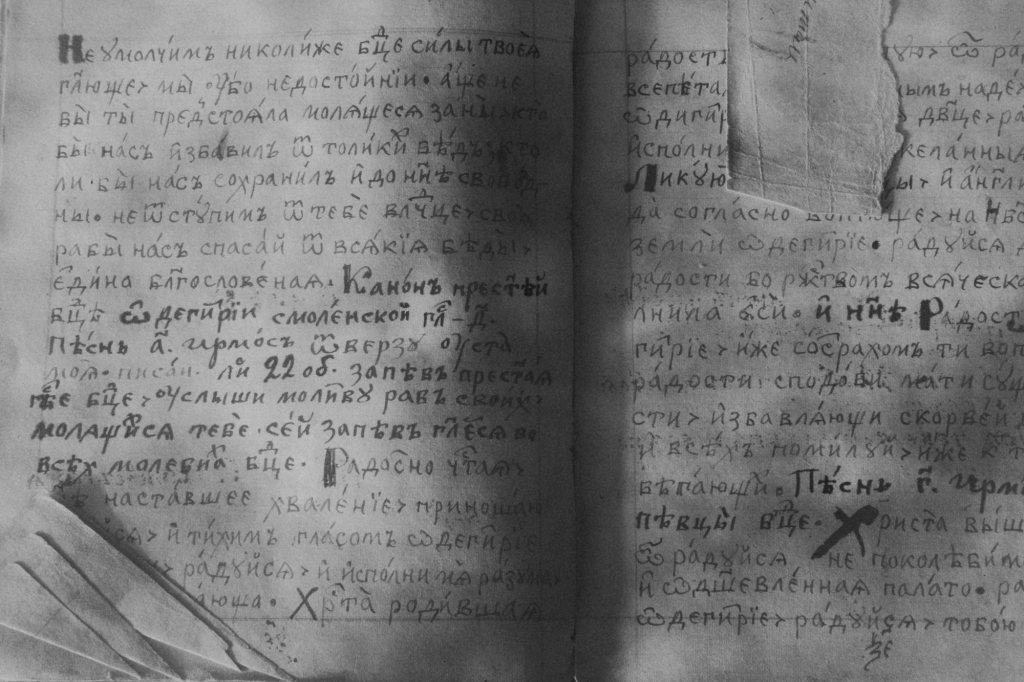 Не умолчи́мъ николи́же бц҃е си́лы твоея̀
гл҃юще, мы̀ ѹ҆́бо недосто́йнїи. а҆́ще не
бы̀ ты̀ предстоя́ла моля́щеся за ны̀, кто
бы̀ на́съ и҆зба́вилъ ѿ толи́ки бѣ́дъ, кто
ли бы̀ на́съ сохрани́лъ и҆ до нн҃ѣ свобод
ны. не ѿсту́пимъ ѿ тебѐ влⷣчце, своя̀
рабы̀ на́съ спаса́й ѿ вся́кїя бѣды̀,
є҆ди́на блг҃ослове́ная. Кано́нъ прест҃ѣй
бц҃ѣ ѡ҆деги́трїи смоле́нской гл҃-д҃.
Пѣ́снь а҃. ирмо́съ ѿве́рзу ѹ҆ста̀
моя̀. писа́н. ли́ 22 об. запѣ́въ преста́я
гж҃е бц҃е, ѹ҆слы́ши моли́тву рабъ свои́хъ
моля́щихся тебѐ. се́й запѣ́въ гл҃ется во
всѣ́х моле́бнах бц҃е. Ра́досно чт҃ая,
наста́вшее хвале́нїе, приноша́ю
и҆ ти́химъ гла́сомъ ѡ҆деги́трїе
ра́дуйся, и҆ и҆спо́лни мя̀ ра́зума,
Хрⷭ҇та̀ роди́вшая
ра́дость ѿ ра́
всепѣ́та ымъ наде́ж
ѡ҆диги́трї дв҃це, ра
и҆спо́лни жела́нныя
Лику́ю ы, и҆ а҆́нг҃ли
да согла́сно вопию́ще, на нбⷭ҇
землѝ ѡ҆деги́трїе. ра́дуйся
ра́дости бо рж҃тво́мъ вся́ческа
лни́ла є҆сѝ. и҆ нн҃ѣ Ра́дост
ги́трїе, и҆́же со стра́хомъ ти воп
ра́дости сподо́би, ма́ти су́щ
сти, и҆збавля́ющи скорбе́й
и҆ всѣ́хъ поми́луй, и҆́же к т
бѣга́ющи. Пѣ́снь г҃. ирм
пѣвцы̀ бц҃е. Христа̀ вы́ш
ѿ ра́дуйся не поколѣби́м
и҆ ѡ҆дш҃евле́нная пала́то. ра
ѡ҆деги́трїе, ра́дуйся, тобо́ю